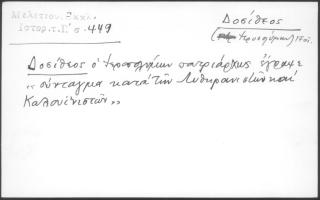 Μελετίου. Εκκλ.
Ιστορ. τ. Γ΄ σ. 449
Δοσίθεος
(Ιεροσολύμων) 17 αι.
Δοσίθεος ὁ Ιεροσολύμων πατριάρχης ἔγραψε
«σύνταγμα κατὰ τῶν Λυθηρανιστῶν καί
Καλουϊνιστῶν»